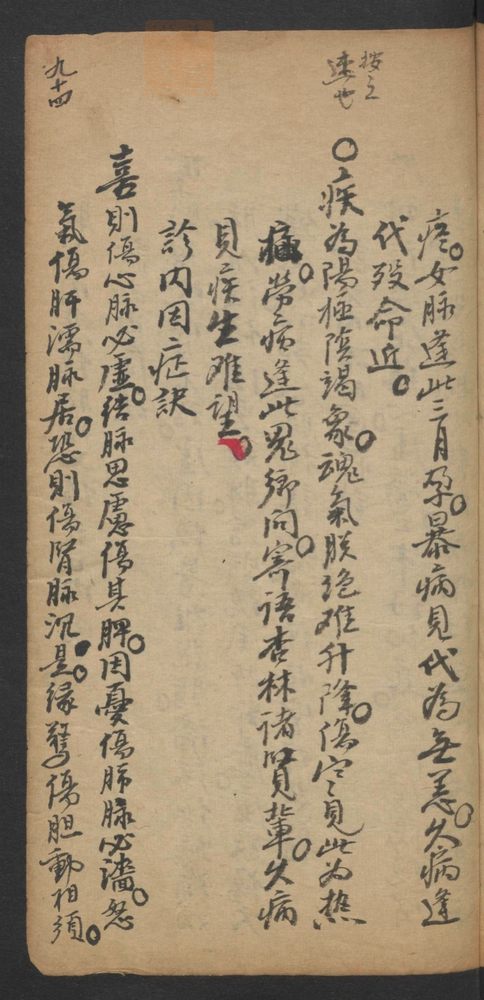 按之
速也
痊。女脉逢此三月孕。暴病見代為無恙。久病逢
代歿命近。
○疾為陽極陰竭象。魂氣脱絶难升降。傷寒見此为热
極。勞病逢此鬼鄉问。寄语杏林诸賢輩。久病
見疾生难望。
診内因症訣
喜則傷心脉必虚。结脉思慮傷其脾。因憂傷肺脉必濇。怒
氣傷肝濡脉居。恐則傷腎脉沉是。缘驚傷胆動相須。
九十四